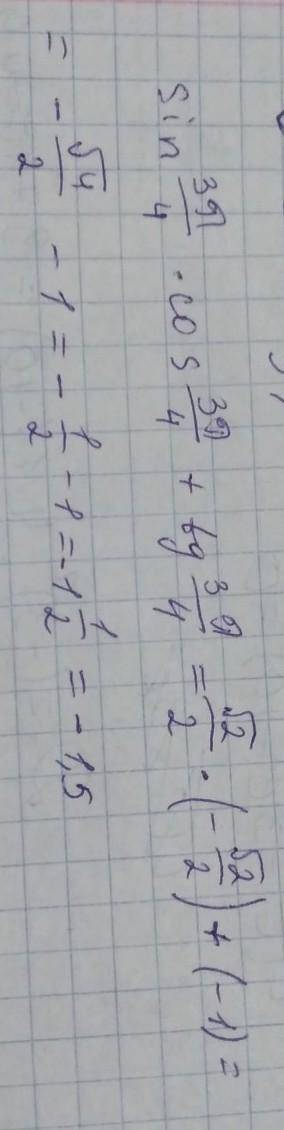 sin 3π/4 · cos 3π/4 + tg 3π/4 = √2/2 · (-√2/2) + (-1) =
= -√4/2 - 1 = -1/2 - 1 = -1 1/2 = -1,5